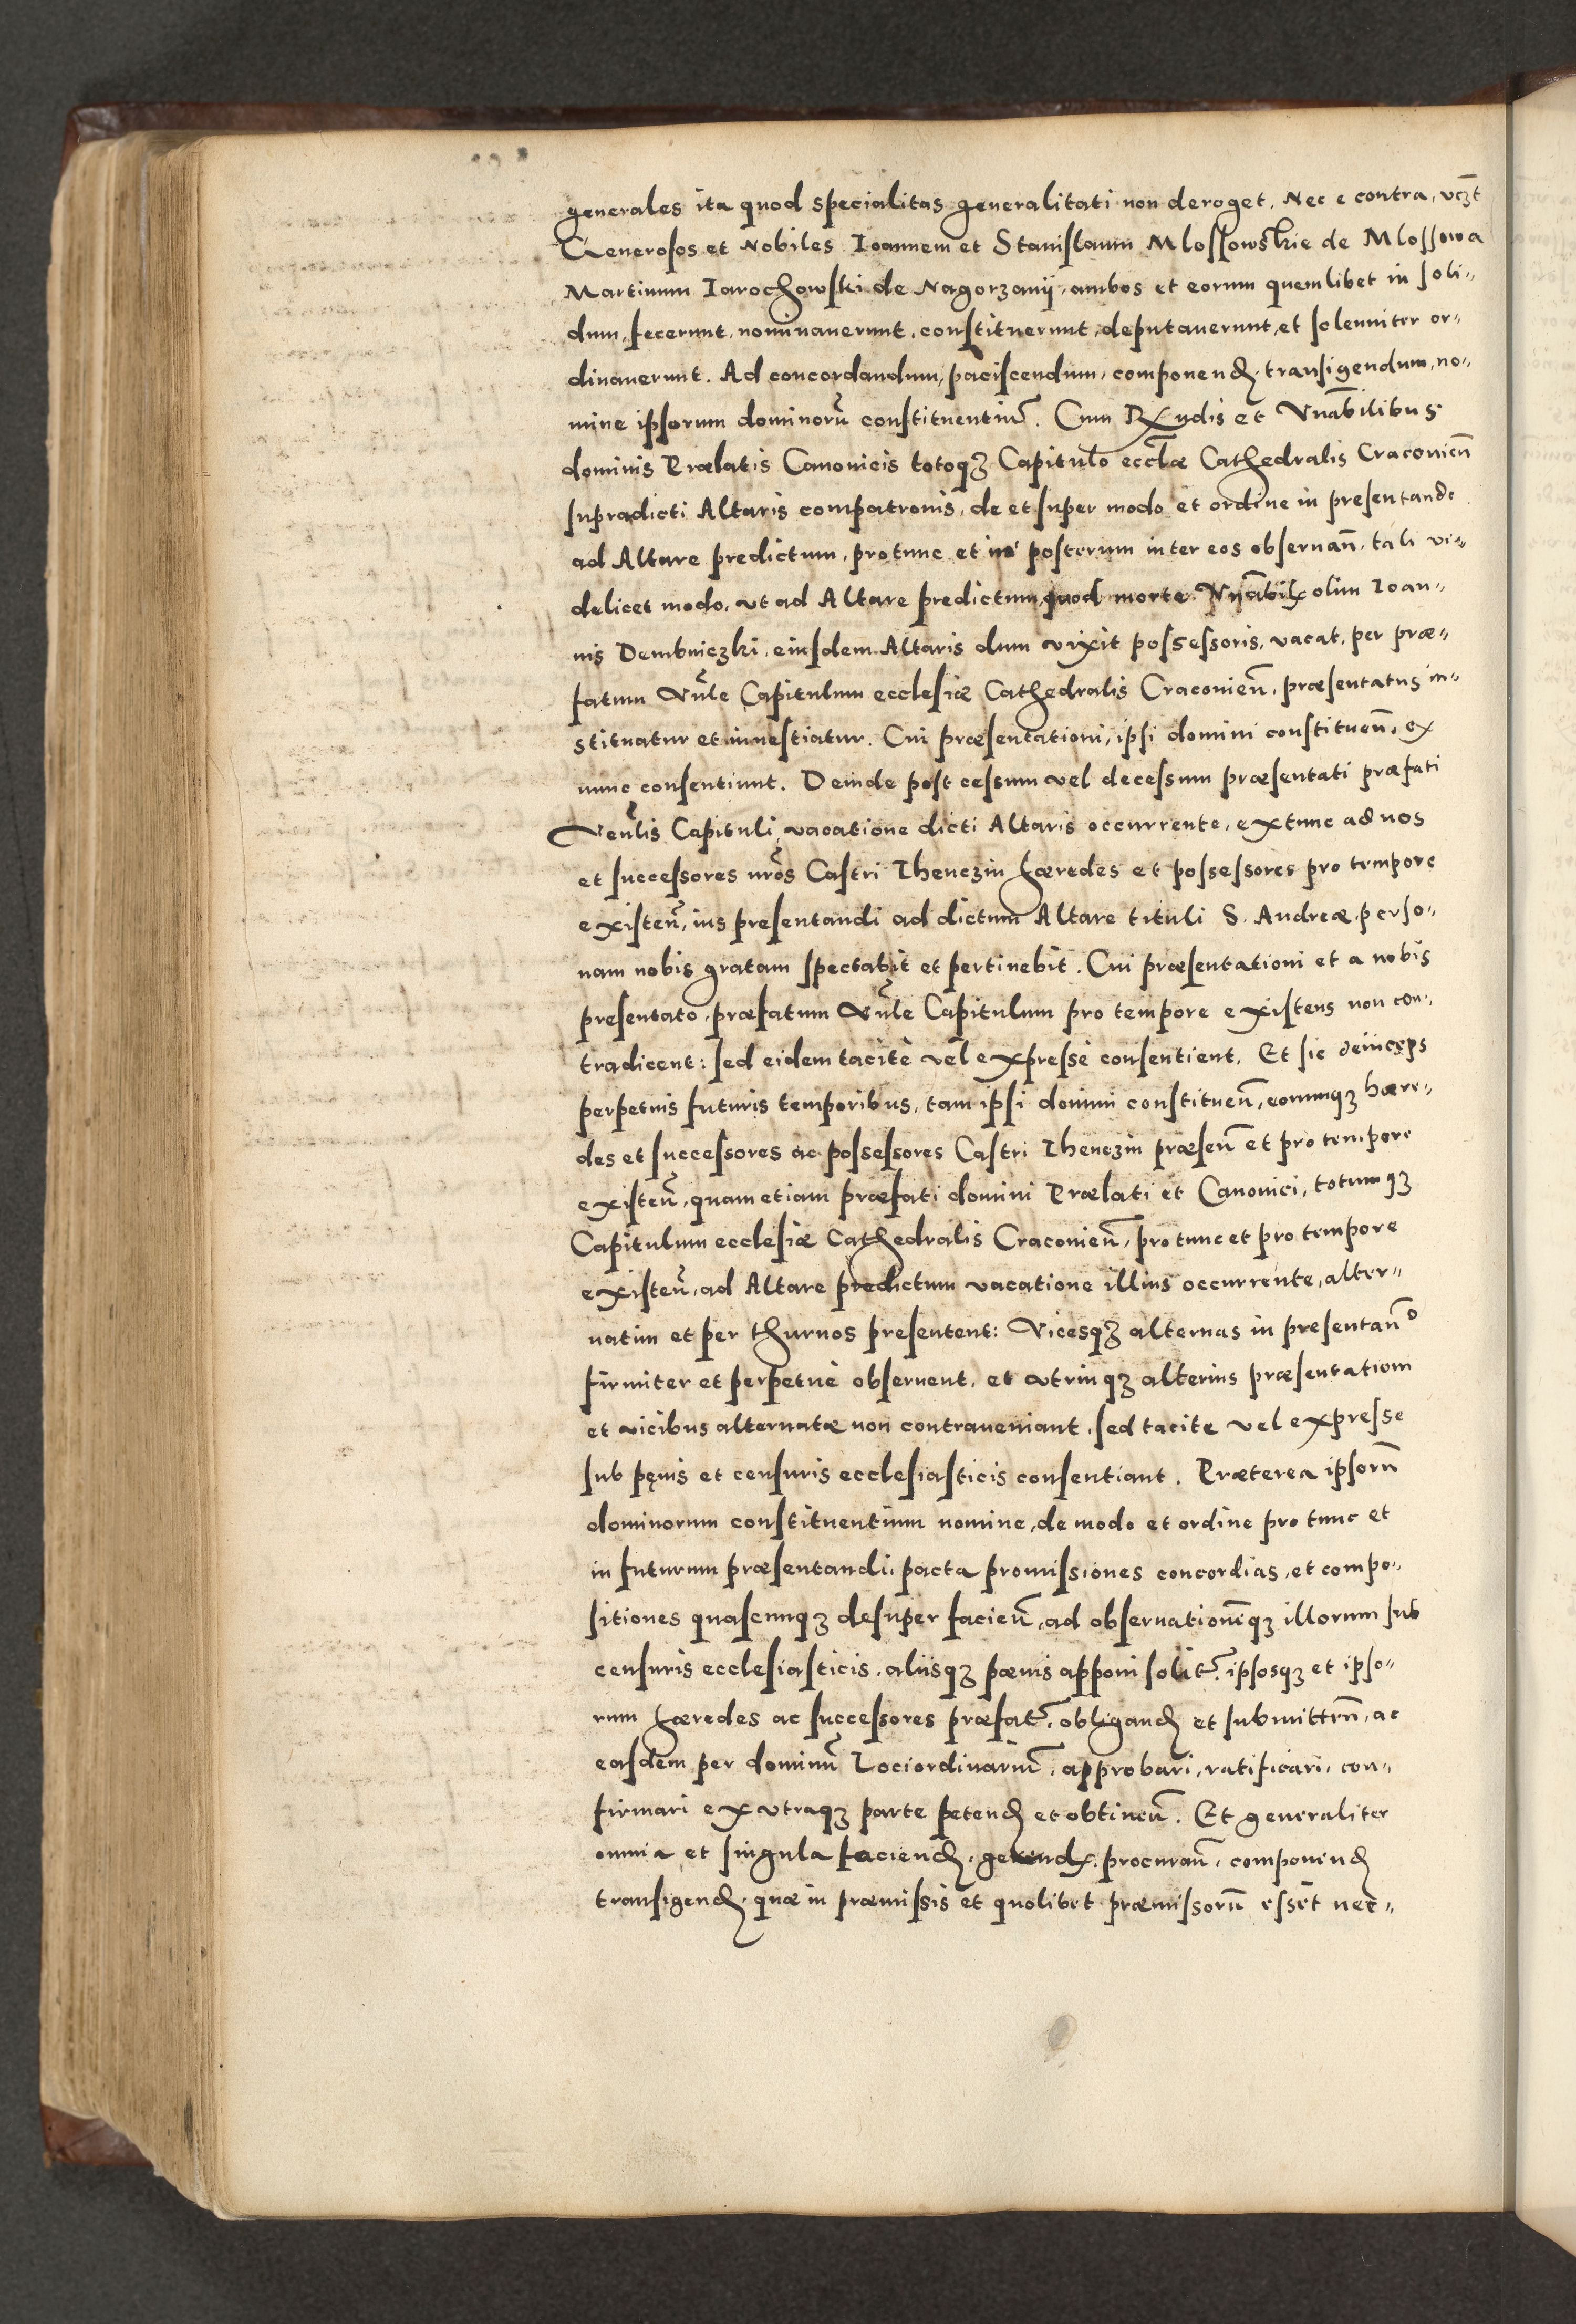 generales ita quod specialitas generalitati non deroget. Nec e contra, vczt
Generosos et Nobiles Ioannem et Stanislaum Mlossowskie de Mlossowa
Martinum Iarochowski de Nagorzanij, ambos et eorum quemlibet in soli-
dum, fecerunt, nominauerunt, constituerunt, deputauerunt, et solenniter or-
dinauerunt. Ad concordandum, paciscendum, componend, transigendum, no-
mine ipsorum dominorũ constituentiũ. Cum Rndis et Vnãbilibus
dominis Prælatis Canonicis totoqꝫ Capitulo eccłæ Cathedralis Craconieñ
supradicti Altaris compatronis, de et super modo et ordine in presentando
ad Altare predictum, protunc et in posterum inter eos obseruañ, tali vi-
delicet modo, vt ad Altare predictum, quod morte Vnãbil olim Ioan-
nis Dembniczki, eiusdem Altaris dum vixit possessoris, vacat, per præ-
fatum Vñle Capitulum ecclesiæ Cathedralis Craconieñ, præsentatus in-
stituatur et inuestiatur. Cui præsentationi, ipsi domini constitueñ, ex
nunc consentiunt. Deinde post cessum vel decessum præsentati præfati
Veñlis Capituli, vacatione dicti Altaris occurrente, extunc ad nos
et successores nrõs Castri Thenczin hæredes et possessores pro tempore
existeñ, ius presentandi ad dictum Altare tituli S. Andreæ, perso-
nam nobis gratam spectabit et pertinebit. Cui præsentationi et a nobis
presentato, præfatum Vñle Capitulum pro tempore existens non con-
tradicent: sed eidem tacitè vel expressè consentient. Et sic deinceps
perpetuis futuris temporibus, tam ipsi domini constitueñ, eorumqꝫ hære-
des et successores ac possessores Castri Thenczin præseñ et pro tempore
existeñ, quam etiam præfati domini Prælati et Canonici, totumqꝫ
Capitulum ecclesiæ Cathedralis Craconieñ, pro tunc et pro tempore
existeñ, ad Altare predictum vacatione illius occurrente, alter-
natim et per thurnos presentent: Vicesqꝫ alternas in presentañº
firmiter et perpetuè obseruent, et vtrinqꝫ alterius præsentationi
et vicibus alternatæ non contraueniant, sed tacite vel expresse
sub pęnis et censuris ecclesiasticis consentiant. Præterea ipsorũ
dominorum constituentium nomine, de modo et ordine pro tunc et
in futurum præsentandi, pacta promissiones concordias, et compo-
sitiones quascunqꝫ desuper facieñ, ad obseruationẽqꝫ illorum sub
censuris ecclesiasticis, aliisqꝫ pœnis apponi solit, ipsosqꝫ et ipso-
rum hæredes ac successores præfat, obligand et submitteñ, ac
easdem per dominũ Lociordinariũ, approbari, ratificari, con-
firmari ex vtraqꝫ parte petend et obtineñ. Et generaliter
omnia et singula faciend, gerend, procurañ, componend
transigend, quæ in præmissis et quolibet præmissorũ essẽt nec-